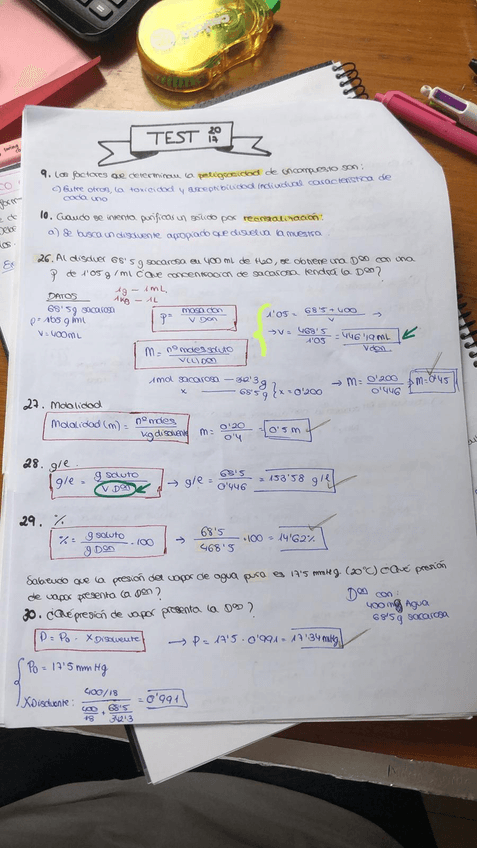 TEST 20 17
9. Los factores que determinan la peligrosidad de un compuesto son:
c) Entre otros, la toxicidad y susceptibilidad individual característica de
cada uno
10. Cuando se intenta purificar un sólido por recristalización:
a) Se busca un disolvente apropiado que disuelva la muestra
26. Al disolver 68'5 g sacarosa en 400 ml de H2O, se obtiene una Dson con una
ρ de 1'05 g/ml ¿Qué concentración de sacarosa tendrá la Dson?
DATOS
1g — 1mL
1kg — 1L
68'5g sacarosa
V = 400mL
ρ = masa dson / V. Dson
1'05 = 68'5 + 400 / V →
→ V = 468'5 / 1'05 = 446'19 mL
V dson
M = nº moles soluto / V(L) Dson
1mol sacarosa — 342'3g
x — 68'5g } x = 0'200
→ M = 0'200 / 0'446 = M = 0'45
27. Molalidad
Molalidad (m) = nº moles / kg disolvente
m = 0'20 / 0'4 = 0'5m
28. g/l
g/l = g soluto / V. Dson → g/l = 68'5 / 0'446 = 153'58 g/l
29. %
% = g soluto / g Dson · 100 → 68'5 / 468'5 · 100 = 14'62%
Sabiendo que la presión del vapor de agua pura es 17'5 mmHg (20ºC) ¿Qué presión
de vapor presenta la Dson?
30. ¿Qué presión de vapor presenta la Dson?
Dson con:
400 mg Agua
68'5g sacarosa
P = P0 · X Disolvente → P = 17'5 · 0'991 = 17'34 mmHg
P0 = 17'5 mmHg
X Disolvente: 400/18 / 400/18 + 68'5/342'3 = 0'991